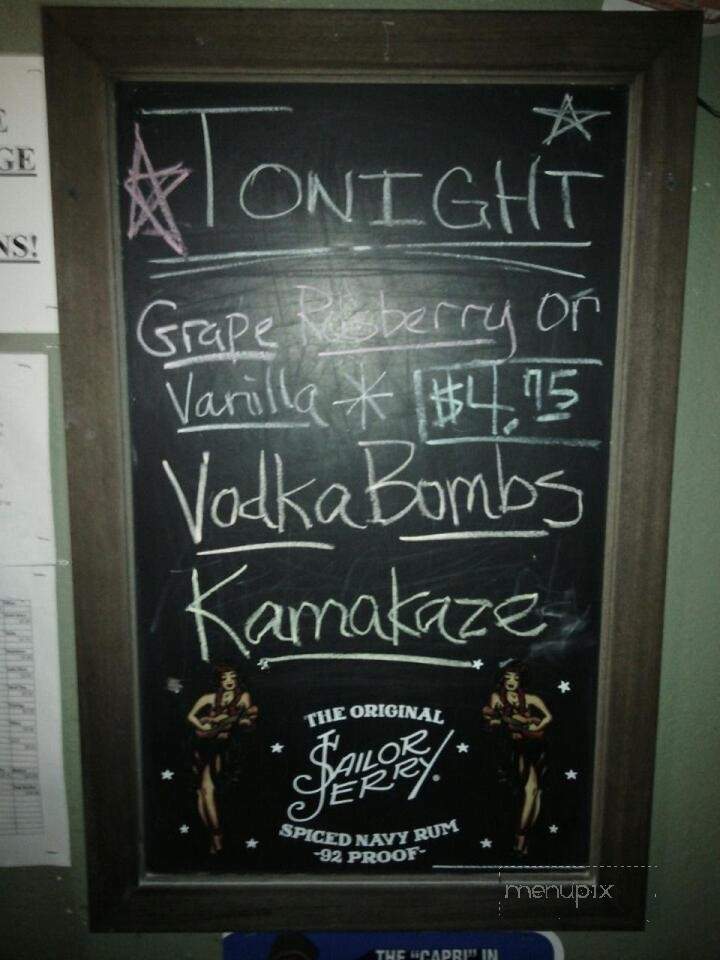 TONIGHT
Grape Rasberry or
Vanilla * $4.75
Vodka Bombs
Kamakaze
THE ORIGINAL
SAILOR
JERRY
SPICED NAVY RUM
-92 PROOF-
menupix
THE "CAPRI" IN
GE
NS!